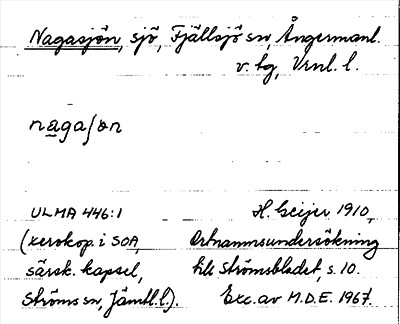 Nagasjön, sjö, Fjällsjö sn, Ångermanl.
v. tg, Vrnl. l.
nagaʃɵn
ULMA 446:1 H. Geijer 1910,
(xerokop. i SOA, Ortnamnsundersökning
särsk. kapsel, till Strömsbladet, s. 10.
Ströms sn, Jämtl. l.). Exc. av M.D.E. 1967.